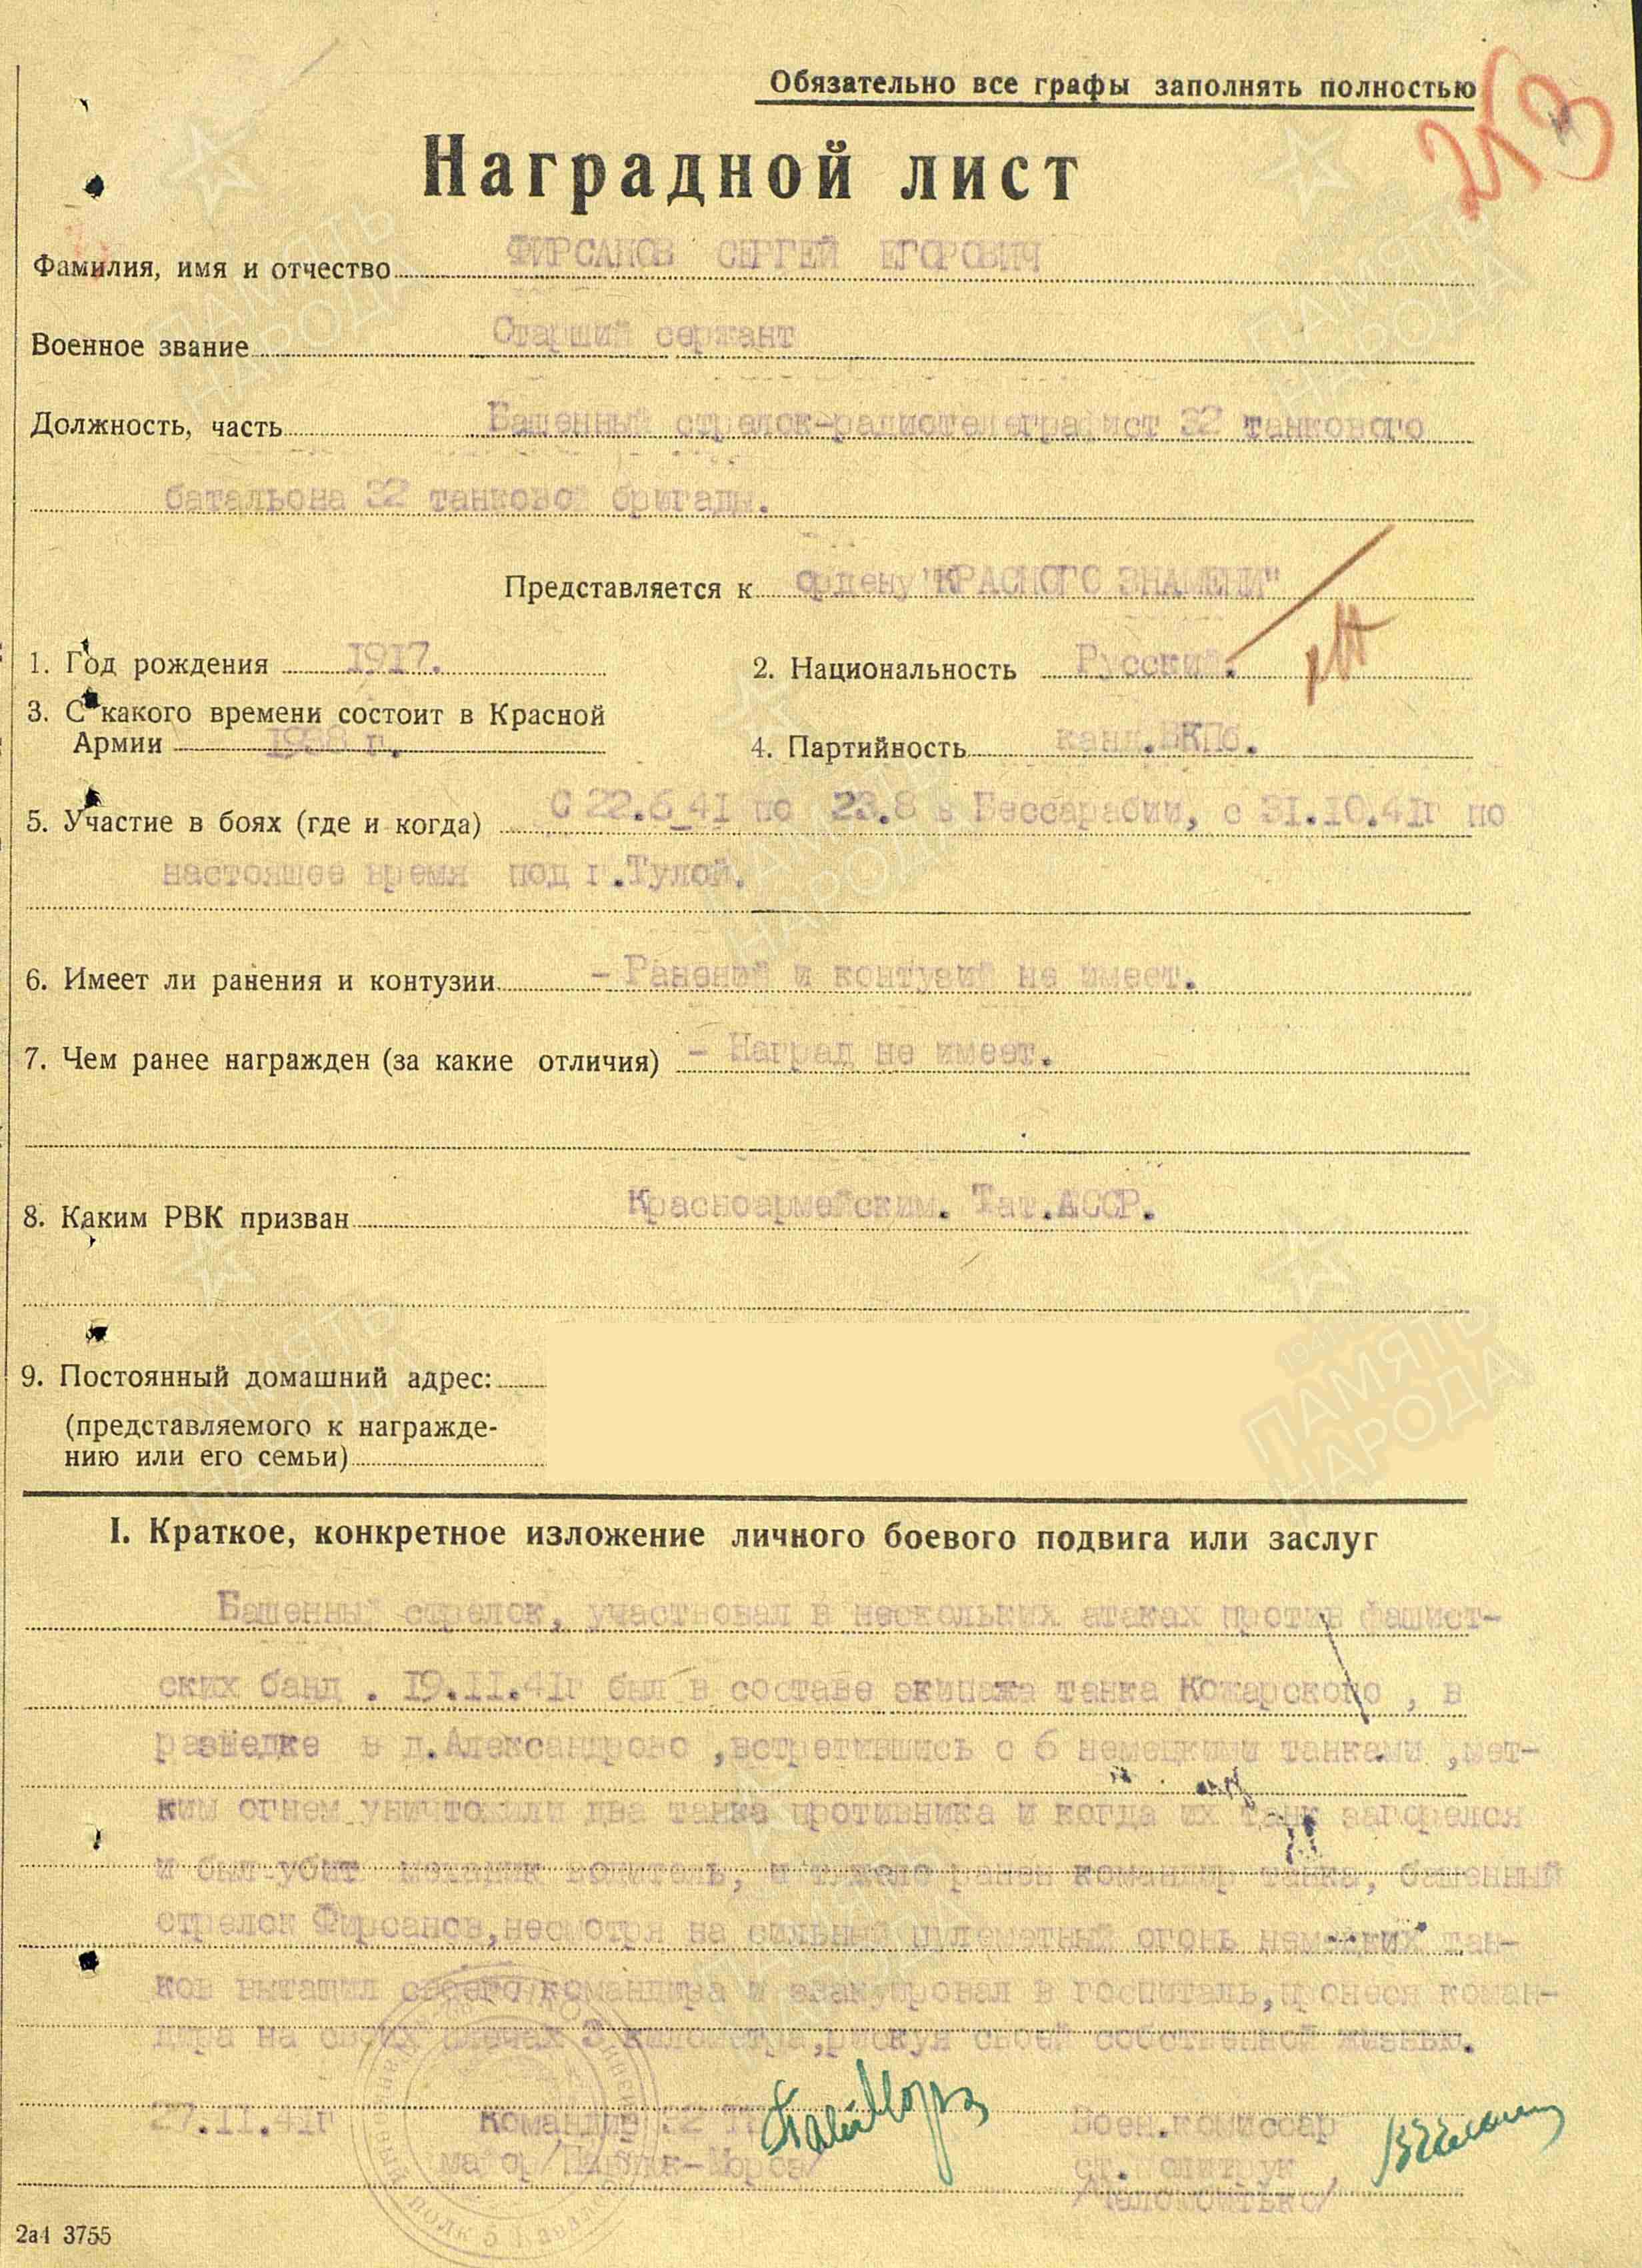 Обязательно все графы заполнять полностью
Наградной лист
Фамилия, имя и отчество ФИРСАНОВ СЕРГЕЙ ЕГОРОВИЧ
Военное звание Старший сержант
Должность, часть Башенный стрелок-радиотелеграфист 32 танкового
батальона 32 танковой бригады.
Представляется к ордену "КРАСНОГО ЗНАМЕНИ"
1. Год рождения 1917.
2. Национальность Русский.
3. С какого времени состоит в Красной
Армии 1938 г.
4. Партийность канд.ВКПб.
5. Участие в боях (где и когда) С 22.6_41 по 23.8 в Бессарабии, с 31.10.41г по
настоящее время под г.Тулой.
6. Имеет ли ранения и контузии - Ранений и контузий не имеет.
7. Чем ранее награжден (за какие отличия) - Наград не имеет.
8. Каким РВК призван Красноармейским. Тат.АССР.
9. Постоянный домашний адрес:
(представляемого к награжде-
нию или его семьи)
I. Краткое, конкретное изложение личного боевого подвига или заслуг
Башенный стрелок, участвовал в нескольких атаках против фашист-
ских банд . 19.11.41г был в составе экипажа танка Кожарского , в
разведке в д.Александрово ,встретившись с 6 немецкими танками ,мет-
ким огнем уничтожили два танка противника и когда их танк загорелся
и был убит механик водитель, и тяжело ранен командир танка, башенный
стрелок Фирсанов,несмотря на сильный пулеметный огонь немецких тан-
ков вытащил своего командира и эвакуировал в госпиталь,пронеся коман-
дира на своих плечах 3 километра,рискуя своей собственной жизнью.
27.11.41г Командир 32 Воен.комиссар
майор ст.политрук
2а4 3755
ПАМЯТЬ НАРОДА